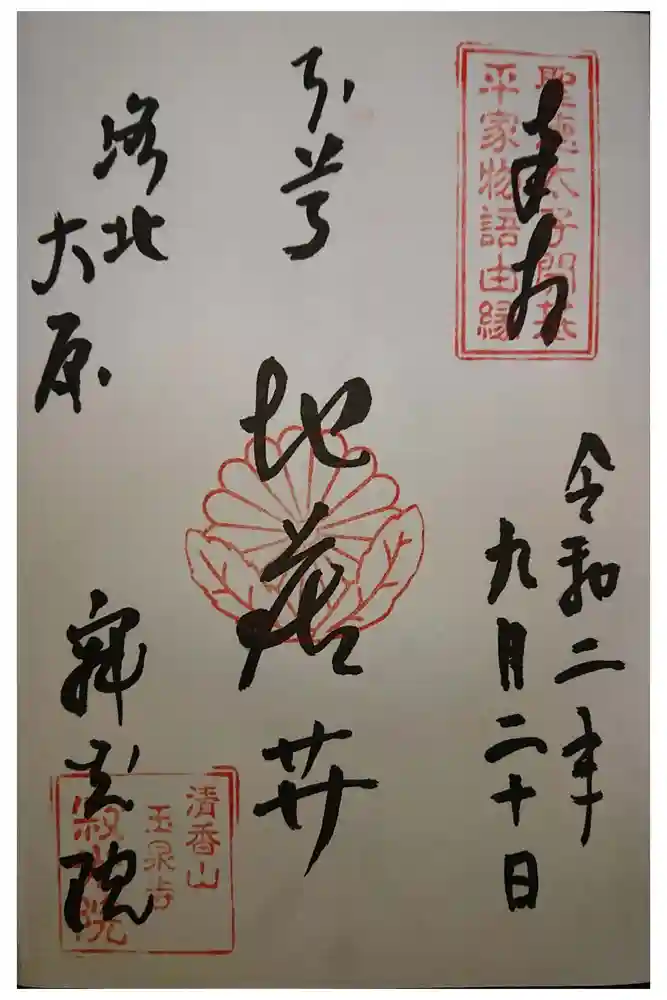 奉拝
聖徳太子開基
平家物語由縁
令和二年
九月二十日
本尊
地蔵𦬇
洛北
大原
寂光院
清香山
玉泉寺
寂光院